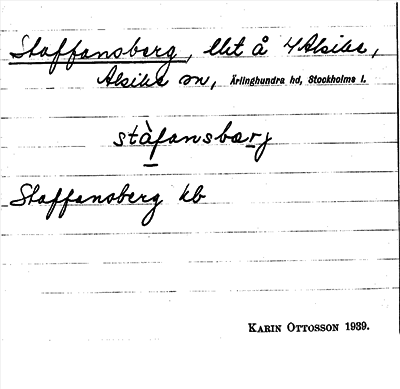 Staffansberg, lht å 4 Alsike,
Alsike sn, Ärlinghundra hd, Stockholms l.
stàfansbærj
Staffansberg kb
KARIN OTTOSSON 1939.